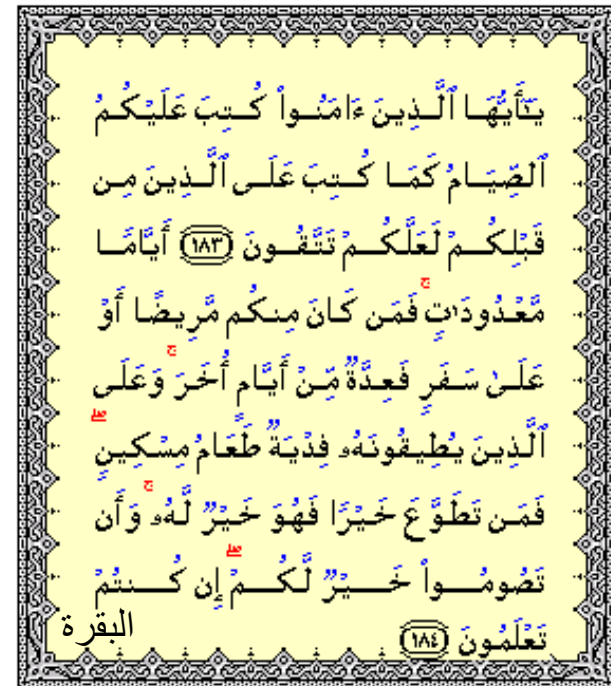 يَـٰٓأَيُّهَا ٱلَّذِينَ ءَامَنُوا۟ كُتِبَ عَلَيْكُمُ
ٱلصِّيَامُ كَمَا كُتِبَ عَلَى ٱلَّذِينَ مِن
قَبْلِكُمْ لَعَلَّكُمْ تَتَّقُونَ ﴿١٨٣﴾ أَيَّامًا
مَّعْدُودَٰتٍ ۚ فَمَن كَانَ مِنكُم مَّرِيضًا أَوْ
عَلَىٰ سَفَرٍ فَعِدَّةٌ مِّنْ أَيَّامٍ أُخَرَ ۚ وَعَلَى
ٱلَّذِينَ يُطِيقُونَهُۥ فِدْيَةٌ طَعَامُ مِسْكِينٍ ۖ
فَمَن تَطَوَّعَ خَيْرًا فَهُوَ خَيْرٌ لَّهُۥ ۚ وَأَن
تَصُومُوا۟ خَيْرٌ لَّكُمْ ۖ إِن كُنتُمْ
تَعْلَمُونَ ﴿١٨٤﴾
البقرة